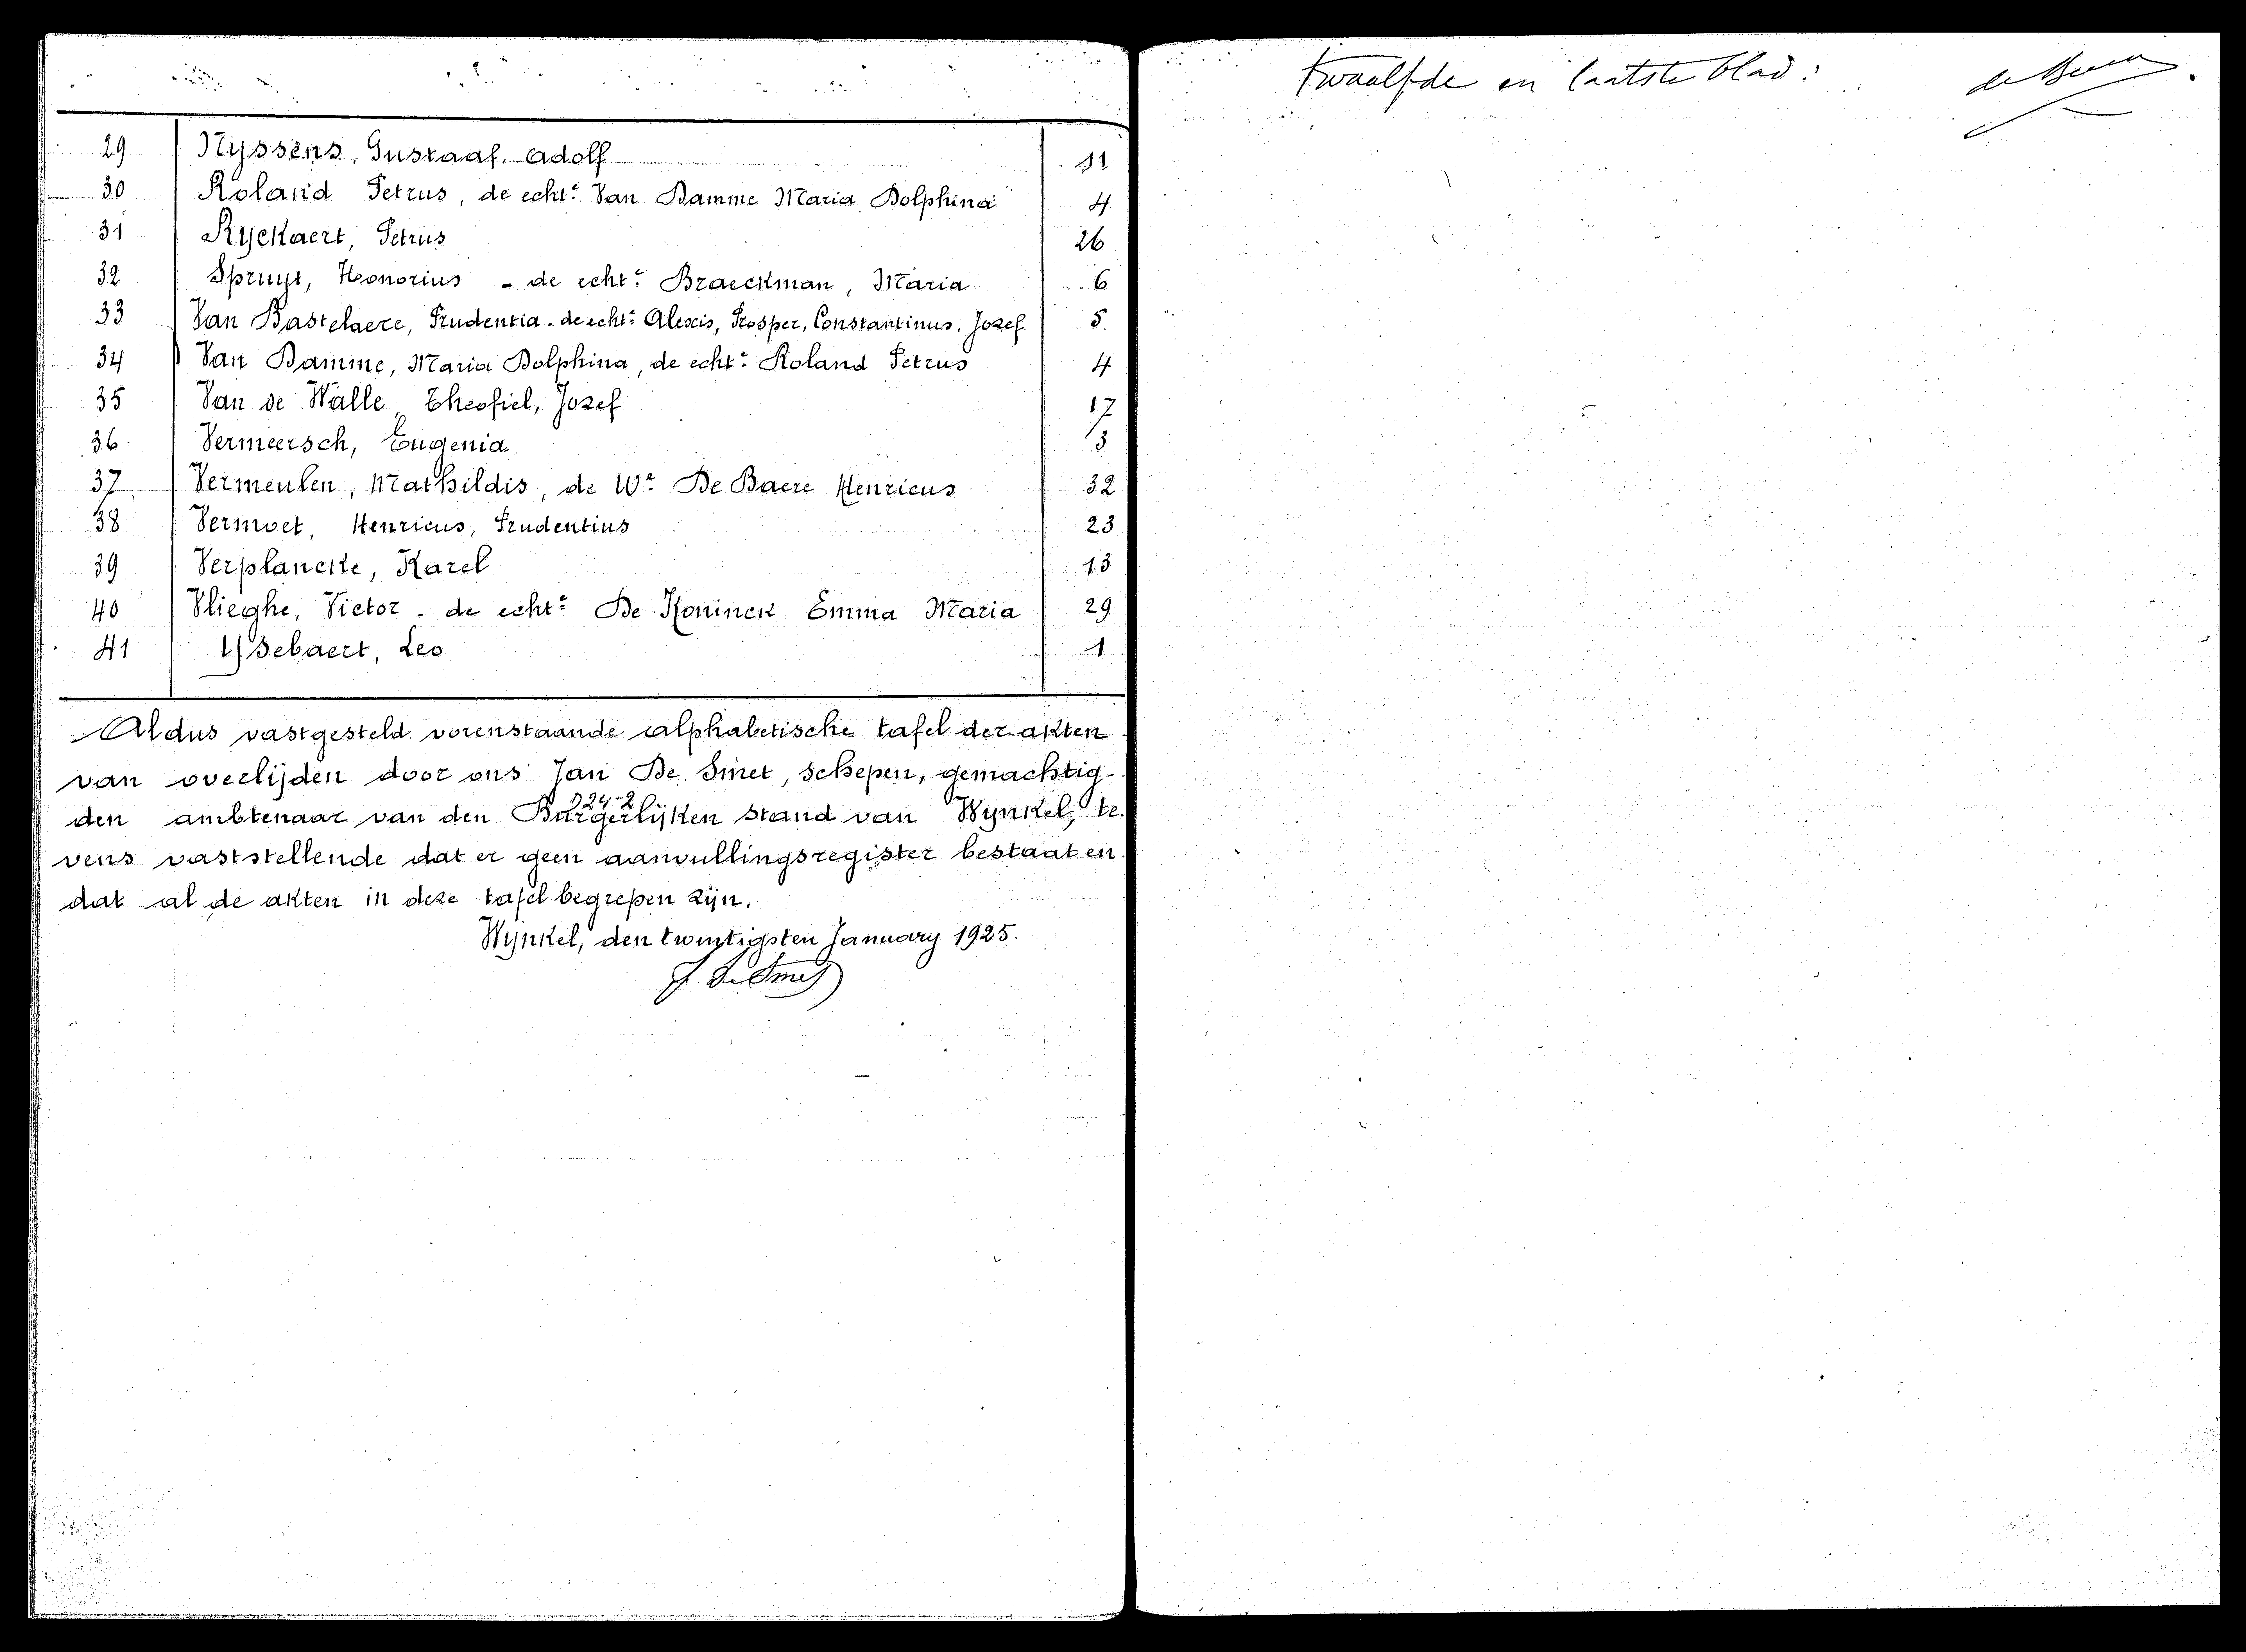 29 Nyssens, Gustaaf, Adolf 11
30 Roland Petrus, de echtᵉ Van Damme Maria Dolphina 4
31 Ryckaert, Petrus 26
32 Spruyt, Honorius - de echtᵉ Braeckman, Maria 6
33 Van Bastelaere, Prudentia. de echtᵉ Alexis, Prosper, Constantinus, Jozef 5
34 Van Damme, Maria Dolphina, de echtᵉ Roland Petrus 4
35 Van de Walle, Theofiel, Jozef 17
36 Vermeersch, Eugenia 3
37 Vermeulen, Mathildis, de Wᵉ De Baere Henricus 32
38 Vermoet, Henricus, Prudentius 23
39 Verplancke, Karel 13
40 Vlieghe, Victor - de echtᵉ De Koninck Emma Maria 29
41 Ysebaert, Leo 1
Aldus vastgesteld vorenstaande alphabetische tafel der akten
van overlijden door ons Jan De Smet, schepen, gemachtig-
den ambtenaar van den Burgerlijken stand van Wynkel, te-
vens vaststellende dat er geen aanvullingsregister bestaat en
dat al de akten in deze tafel begrepen zijn.
Wijnkel, den twintigsten January 1925.
J. De Smet
Twaalfde en laatste blad: